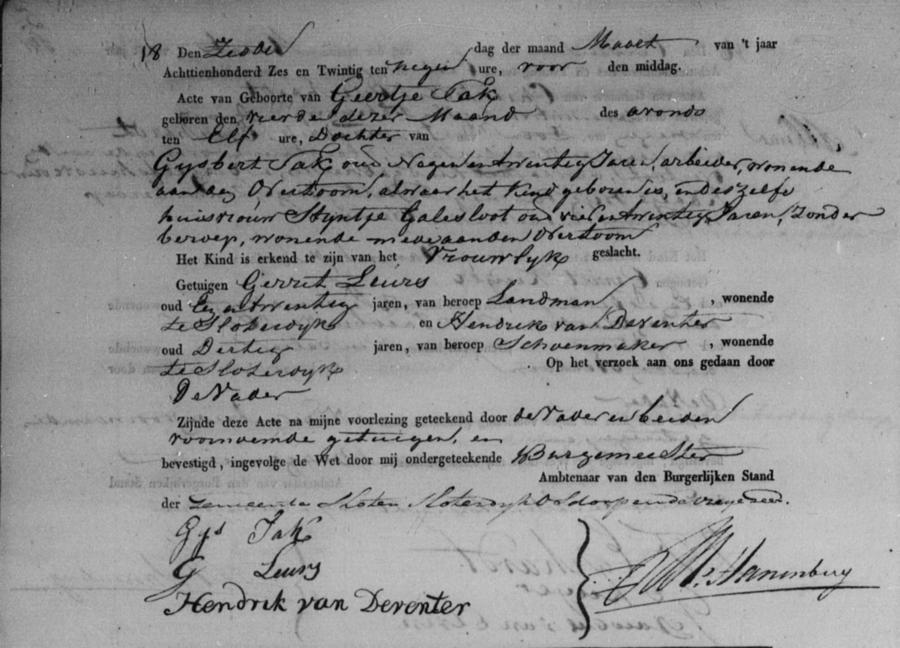 18 Den Zesden dag der maand Maart van 't jaar
Achttienhonderd Zes en Twintig ten negen ure, voor den middag.
Acte van Geboorte van Geertje Tak
geboren den vierde dezer Maand des avonds
ten Elf ure, Dochter van
Gysbert Tak oud Negen en twintig Jaren, arbeider, wonende
aan den Overtoom, alwaar het Kind geboren is, en deszelfs
huisvrouw Styntje Galesloot oud viel en twintig Jaren, zonder
beroep, wonende mede aan den Overtoom
Het Kind is erkend te zijn van het Vrouwlyk geslacht.
Getuigen Gerrit Leurs
oud Een en twintig jaren, van beroep Landman, wonende
te Sloterdyk en Hendrik van Deventer
oud Dertig jaren, van beroep Schoenmaker, wonende
te Sloterdyk Op het verzoek aan ons gedaan door
De Vader
Zijnde deze Acte na mijne voorlezing geteekend door de Vader en beiden
voornoemde getuigen, en
bevestigd, ingevolge de Wet door mij ondergeteekende Burgemeester
Ambtenaar van den Burgerlijken Stand
der Gemeente Sloten Sloterdyk Osdorp en de Vrye geer.
Gys Tak
G Leurs
Hendrik van Deventer